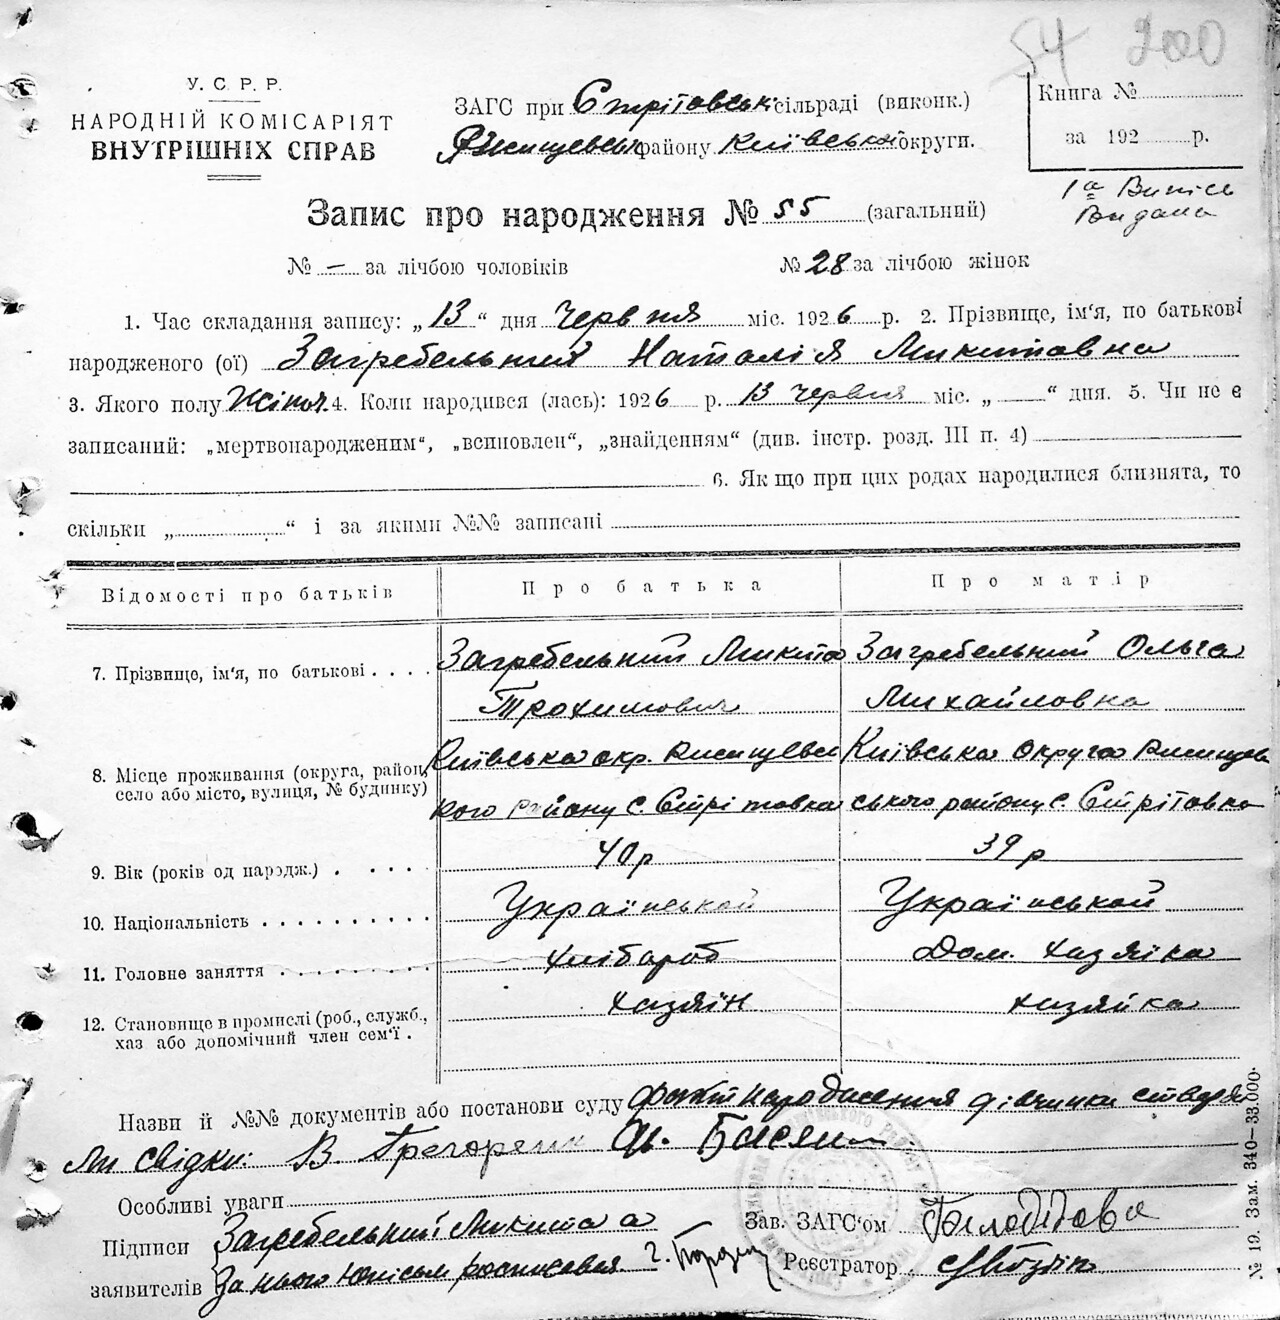 54 200
У. С. Р. Р.
НАРОДНІЙ КОМІСАРІЯТ
ВНУТРІШНІХ СПРАВ
ЗАГС при Стрітовськ сільраді (виконк.)
району Київської округи.
Книга №
за 192 р.
1а Випись
Видана
Запис про народження № 55 (загальний)
№ — за лічбою чоловіків № 28 за лічбою жінок
1. Час складання запису: „13“ дня Червня міс. 1926 р. 2. Прізвище, ім'я, по батькові
народженого (ої) Загребельний Наталія Микитовна
3. Якого полу Жіноч. 4. Коли народився (лась): 1926 р. 13 червня міс. „ “ дня. 5. Чи не є
записаний: „мертвонародженим“, „всиновлен“, „знайденням“ (див. інстр. розд. III п. 4)
6. Як що при цих родах народилися близнята, то
скільки „ “ і за якими №№ записані
Відомості про батьків Про батька Про матір
7. Прізвище, ім'я, по батькові . . . . Загребельний Микита Загребельний Ольга
Трохимович Михайловна
8. Місце проживання (округа, район, Київська окр. Ржищевсь Київська Округа Ржищев
село або місто, вулиця, № будинку) кого району с. Стрітовка ського району с. Стрітовка
9. Вік (років од народж.) . . . . . 40 р 39 р
10. Національність . . . . . . . . . . Український Український
11. Головне заняття . . . . . . . . . Хлібороб Дом. хазяїка
12. Становище в промислі (роб., служб., хазяїн хазяйка
хаз або допомічний член сем'ї .
Назви й №№ документів або постанови суду факт народження дівчинки ствердя
ли свідки: В.
Особливі уваги
Підписи Загребельний Микита а Зав. ЗАГС'ом
заявителів За нього росписався Реєстратор
№ 19. Зам. 340—33.000.